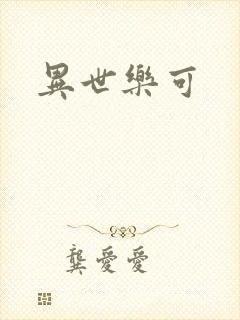 異世樂可
龔愛愛